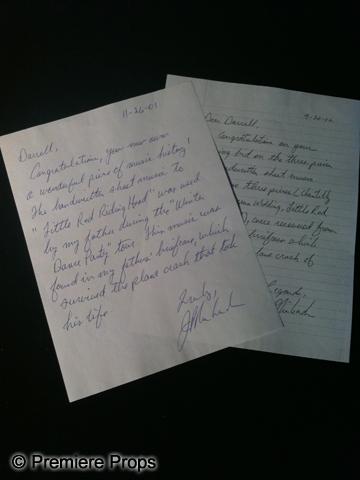 11-26-03
Darrell,
Congratulations, you now own
a wonderful piece of music history!
The handwritten sheet music to
"Little Red Riding Hood" was used
by my father during the "Winter
Dance Party" tour. This music was
found in my fathers' briefcase, which
survived the plane crash that took
his life.
Truly,
Dear Darrell,
Congratulations on your
bid on the three piece
sheet music
three pieces (Chantilly
Wedding, Little Red
were recovered from
briefcase which
plane crash of
Regards,
© Premiere Props